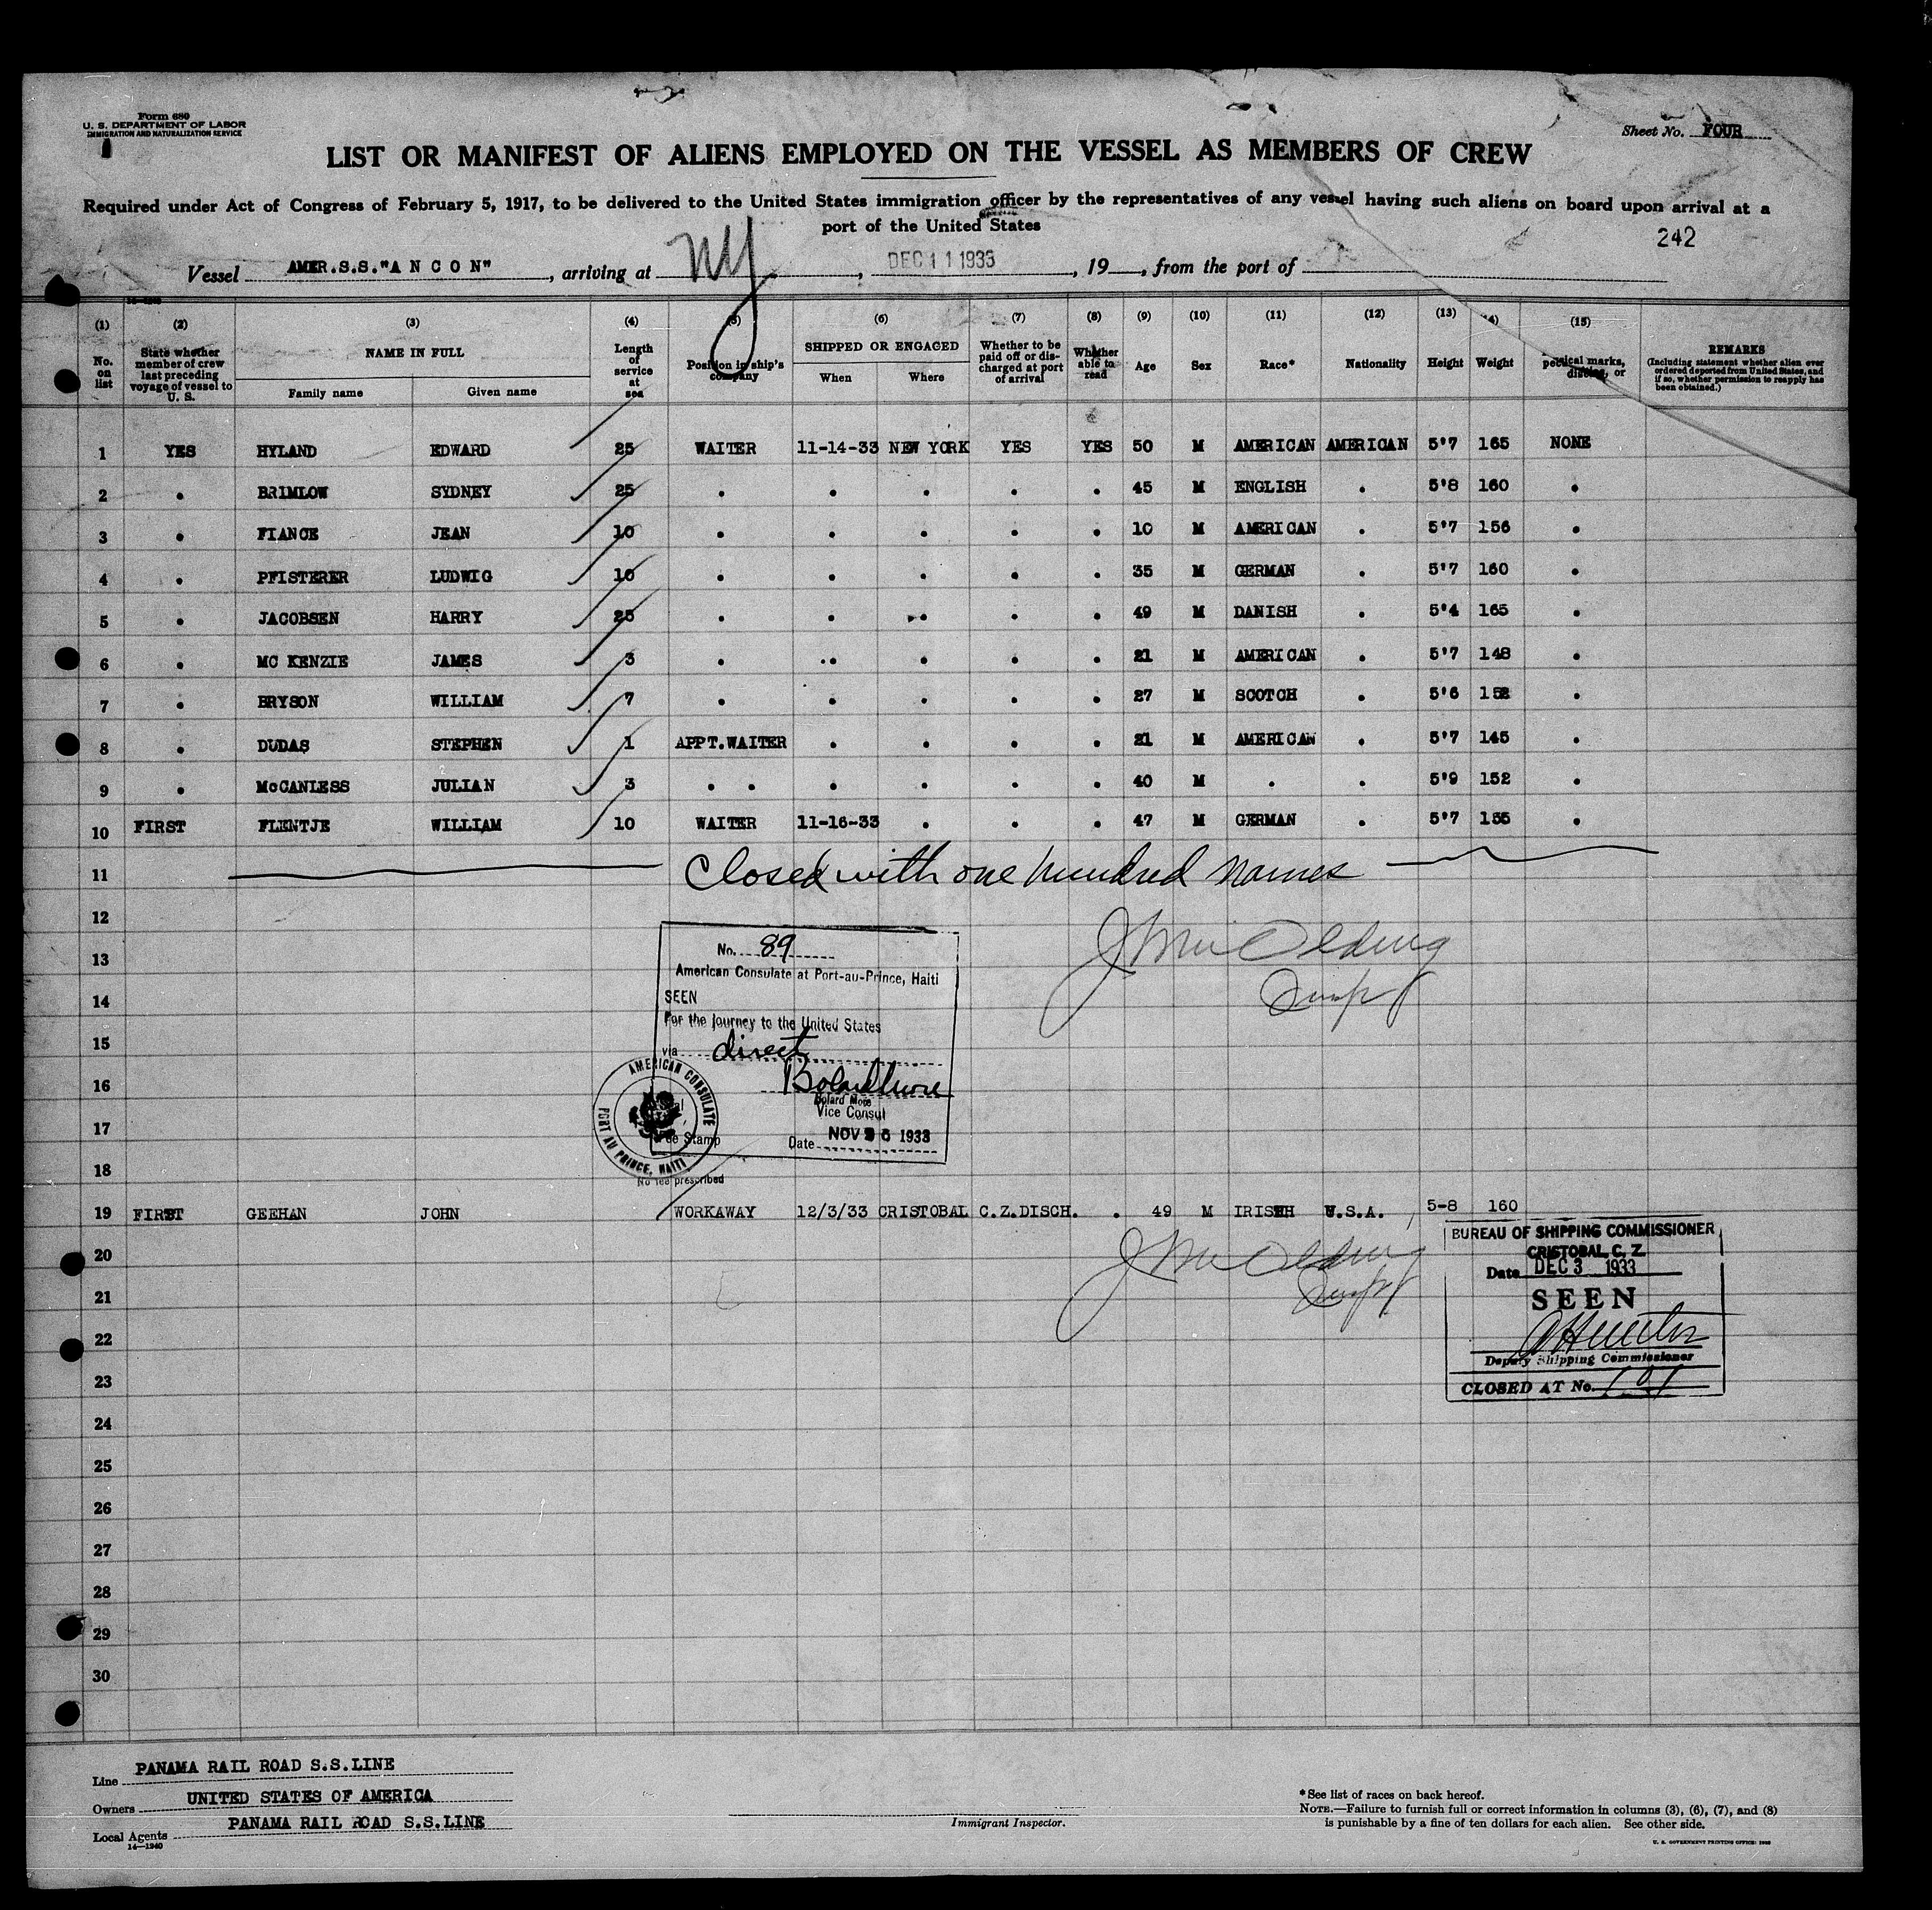 Form 680
U. S. DEPARTMENT OF LABOR
IMMIGRATION AND NATURALIZATION SERVICE
Sheet No. FOUR
LIST OR MANIFEST OF ALIENS EMPLOYED ON THE VESSEL AS MEMBERS OF CREW
Required under Act of Congress of February 5, 1917, to be delivered to the United States immigration officer by the representatives of any vessel having such aliens on board upon arrival at a
port of the United States
242
Vessel AMER.S.S."A N C O N", arriving at NY, DEC 11 1933, 19, from the port of
(1) (2) (3) (4) (5) (6) (7) (8) (9) (10) (11) (12) (13) (14) (15)
No. on list
State whether member of crew last preceding voyage of vessel to U. S.
NAME IN FULL
Family name Given name
Length of service at sea
Position in ship's company
SHIPPED OR ENGAGED
When Where
Whether to be paid off or discharged at port of arrival
Whether able to read
Age Sex Race* Nationality Height Weight
marks, or
REMARKS
(Including statement whether alien ever ordered deported from United States, and if so, whether permission to reapply has been obtained.)
1 YES HYLAND EDWARD 25 WAITER 11-14-33 NEW YORK YES YES 50 M AMERICAN AMERICAN 5'7 165 NONE
2 . BRIMLOW SYDNEY 25 . . . . . 45 M ENGLISH . 5'8 160 .
3 . FIANCE JEAN 10 . . . . . 10 M AMERICAN . 5'7 156 .
4 . PFISTERER LUDWIG 10 . . . . . 35 M GERMAN . 5'7 160 .
5 . JACOBSEN HARRY 25 . . . . . 49 M DANISH . 5'4 165 .
6 . MC KENZIE JAMES 3 . .. . . . 21 M AMERICAN . 5'7 148 .
7 . BRYSON WILLIAM 7 . . . . . 27 M SCOTCH . 5'6 152 .
8 . DUDAS STEPHEN 1 APPT.WAITER . . . . 21 M AMERICAN . 5'7 145 .
9 . McCANLESS JULIAN 3 . . . . . . 40 M . . 5'9 152 .
10 FIRST FLENTJE WILLIAM 10 WAITER 11-16-33 . . . 47 M GERMAN . 5'7 155 .
11 Closed with one hundred names
12
13
14
15
16
17
18
No. 89
American Consulate at Port-au-Prince, Haiti
SEEN
For the journey to the United States
via direct
Bolard More
Bolard More
Vice Consul
Fee Stamp
Date NOV 26 1933
AMERICAN CONSULATE
PORT AU PRINCE, HAITI
No fee prescribed
19 FIRST GEEHAN JOHN WORKAWAY 12/3/33 CRISTOBAL C.Z. DISCH. . 49 M IRISH U.S.A. 5-8 160
20
21
22
23
24
25
26
27
28
29
30
BUREAU OF SHIPPING COMMISSIONER
CRISTOBAL, C. Z.
Date DEC 3 1933
SEEN
Deputy Shipping Commissioner
CLOSED AT No. 101
Line PANAMA RAIL ROAD S.S.LINE
Owners UNITED STATES OF AMERICA
Local Agents PANAMA RAIL ROAD S.S.LINE
14—1240
Immigrant Inspector.
*See list of races on back hereof.
NOTE.—Failure to furnish full or correct information in columns (3), (6), (7), and (8)
is punishable by a fine of ten dollars for each alien. See other side.
U. S. GOVERNMENT PRINTING OFFICE: 1932